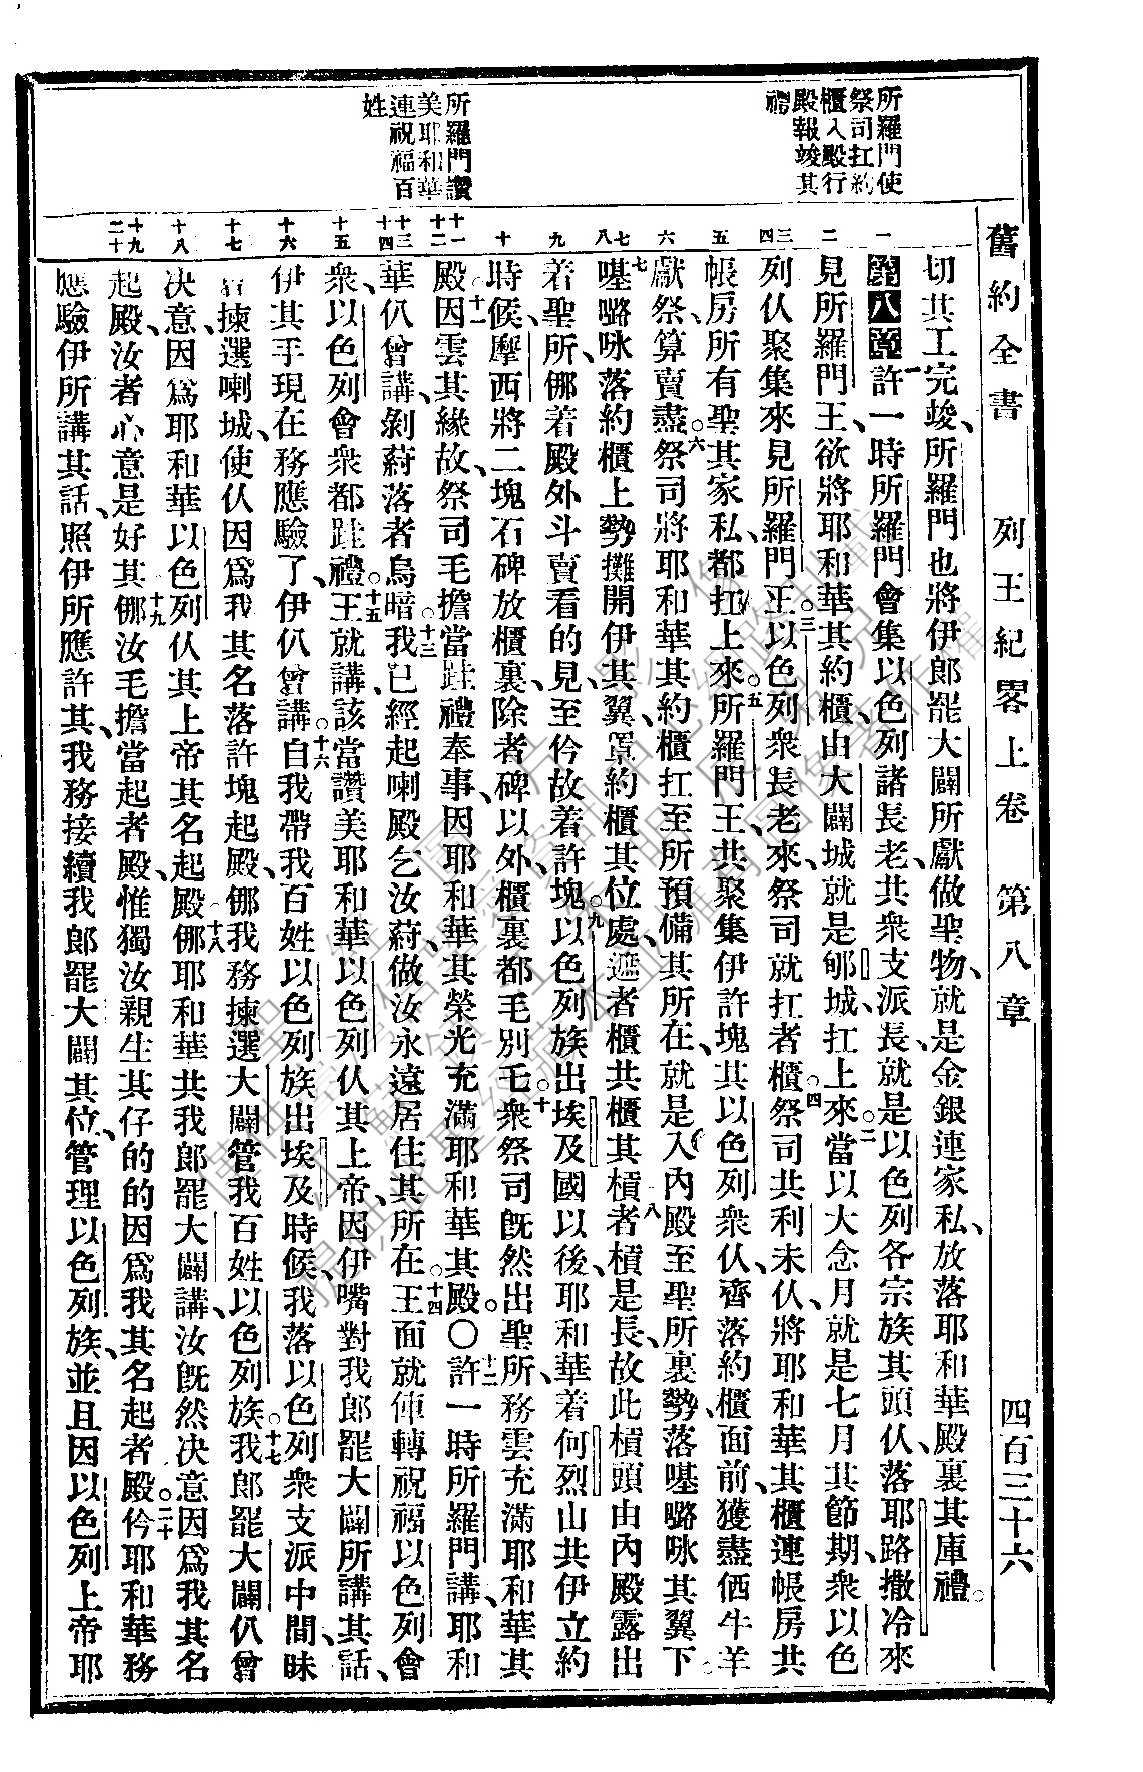 舊約全書　列王紀畧上卷　第八章　四百三十六
所羅門使
祭司扛約
櫃入殿行
殿報竣其
禮
所羅門讚
美耶和華
連祝福百
姓
一
二
三
四
五
六
七
八
九
十
十一
十二
十三
十四
十五
十六
十七
十八
十九
二十
切其工完竣、所羅門也將伊郎罷大闢所獻做聖物、就是金銀連家私、放落耶和華殿裏其庫禮。
第八章　一許一時所羅門會集以色列諸長老共衆支派長就是以色列各宗族其頭仈、落耶路撒冷來
見所羅門王、欲將耶和華其約櫃、由大闢城就是郇城、扛上來。二當以大念月就是七月其節期、衆以色
列仈聚集來見所羅門王。三以色列衆長老來、祭司就扛者櫃。四祭司共利未仈、將耶和華其櫃連帳房共
帳房所有聖其家私、都扛上來。五所羅門王、共聚集伊許塊其以色列衆仈、齊落約櫃面前、獲盡価牛羊
獻祭、算賣盡。六祭司將耶和華其約櫃扛至所預備其所在、就是入內殿至聖所裏勢、落噻嚧咏其翼下。
七噻嚧咏落約櫃上勢攤開伊其翼、罩約櫃其位處、遮者櫃共櫃其槓。八者槓是長、故此槓頭由內殿露出
着聖所、㑚着殿外斗賣看的見、至仱故着許塊。九以色列族出埃及國以後、耶和華着何烈山共伊立約
時候、摩西將二塊石碑放櫃裏、除者碑以外、櫃裏都毛別毛。十衆祭司旣然出聖所、務雲充滿耶和華其
殿。十一因雲其緣故、祭司毛擔當跬禮奉事、因耶和華其榮光充滿耶和華其殿。〇十二許一時所羅門講、耶和
華仈曾講、剝葑落者烏暗。十三我已經起喇殿乞汝葑、做汝永遠居住其所在。十四王面就俥轉祝福以色列會
衆、以色列會衆都跬禮。十五王就講、該當讚美耶和華以色列仈其上帝、因伊嘴對我郎罷大闢所講其話、
伊其手現在務應驗了、伊仈曾講。十六自我帶我百姓以色列族出埃及時候、我落以色列衆支派中間、昧
曾揀選喇城、使仈因爲我其名落許塊起殿、㑚我務揀選大闢管我百姓以色列族。十七我郎罷大闢仈曾
决意、因爲耶和華以色列仈其上帝其名起殿。十八㑚耶和華共我郎罷大闢講、汝旣然决意因爲我其名
起殿、汝者心意是好其。十九㑚汝毛擔當起者殿、惟獨汝親生其仔的的因爲我其名起者殿。二十仱耶和華務
應驗伊所講其話、照伊所應許其、我務接續我郎罷大闢其位、管理以色列族、並且因以色列上帝耶